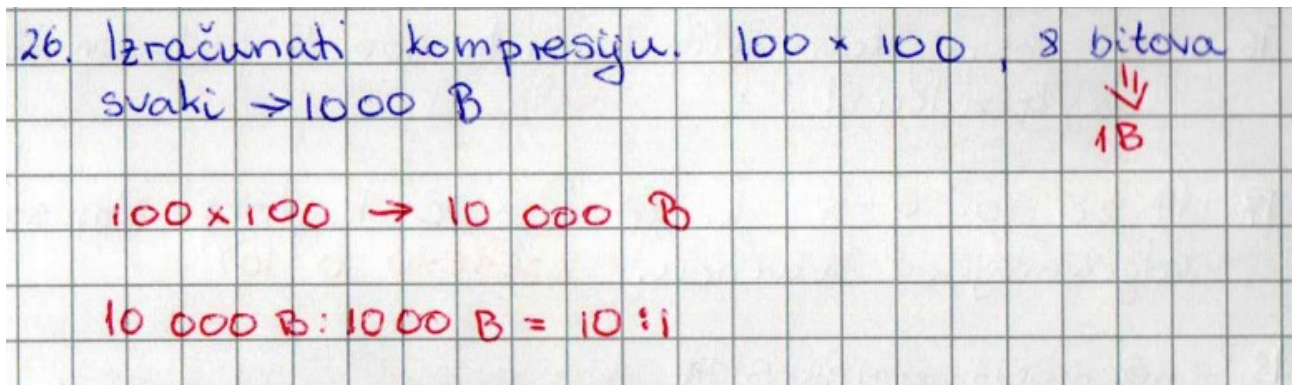 26. Izračunati kompresiju. 100 × 100, 8 bitova
svaki → 1000 B
⇓
1B
100 × 100 → 10 000 B
10 000 B : 1000 B = 10:1